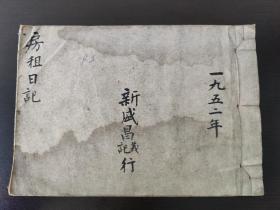 一九五二年
新盛昌義記行
房租日記